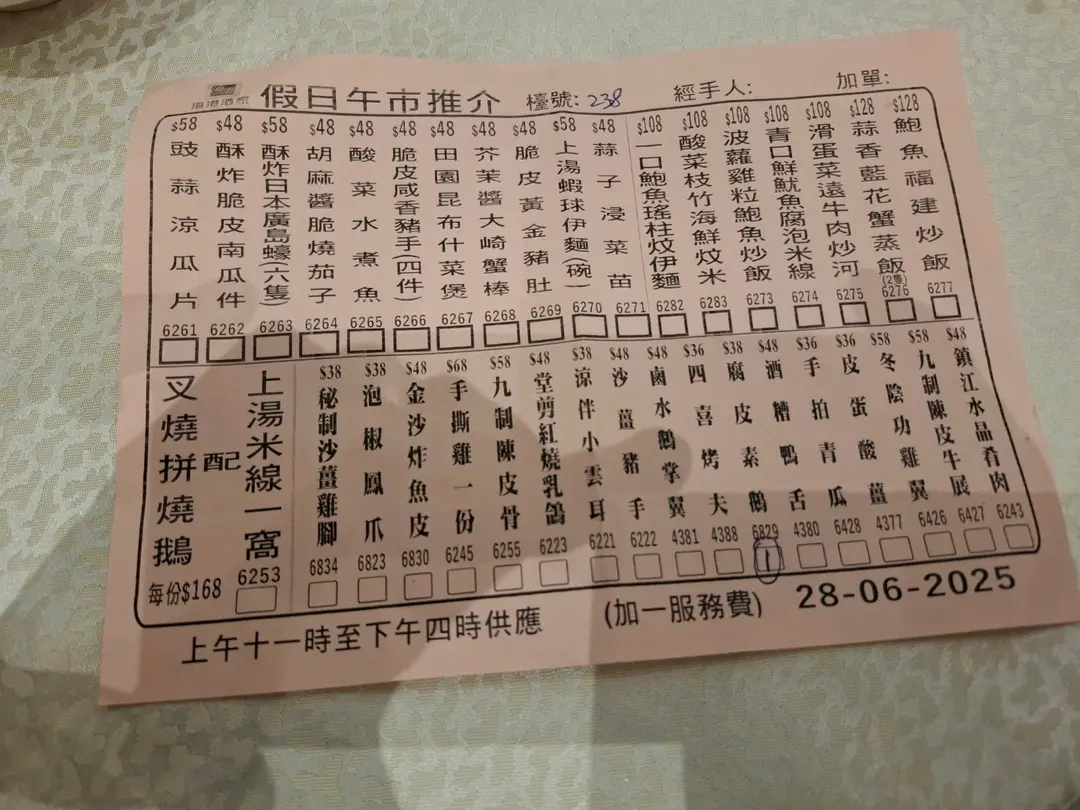 海港酒家
假日午市推介
檯號: 238
經手人:
加單:
$58 豉蒜涼瓜片 6261
$48 酥炸脆皮南瓜件 6262
$58 酥炸日本廣島蠔(六隻) 6263
$48 胡麻醬脆燒茄子 6264
$48 酸菜水煮魚 6265
$48 脆皮咸香豬手(四件) 6266
$48 田園昆布什菜煲 6267
$48 芥茉醬大崎蟹棒 6268
$48 脆皮黃金豬肚 6269
$58 上湯蝦球伊麵(碗) 6270
$48 蒜子浸菜苗 6271
$108 一口鮑魚瑤柱炆伊麵 6282
$108 酸菜枝竹海鮮炆米 6283
$108 波蘿雞粒鮑魚炒飯 6273
$108 青口鮮魷魚腐泡米線 6274
$108 滑蛋菜遠牛肉炒河 6275
$128 蒜香藍花蟹蒸飯(2隻) 6276
$128 鮑魚福建炒飯 6277
叉燒拼燒鵝
配
上湯米線一窩
每份$168 6253
$38 秘制沙薑雞腳 6834
$38 泡椒鳳爪 6823
$48 金沙炸魚皮 6830
$68 手撕雞一份 6245
$58 九制陳皮骨 6255
$48 堂剪紅燒乳鴿 6223
$38 涼伴小雲耳 6221
$48 沙薑豬手 6222
$48 鹵水鵝掌翼 4381
$36 四喜烤夫 4388
$38 腐皮素鵝 6829 1
$48 酒糟鴨舌 4380
$36 手拍青瓜 6428
$36 皮蛋酸薑 4377
$58 冬陰功雞翼 6426
$58 九制陳皮牛展 6427
$48 鎮江水晶肴肉 6243
上午十一時至下午四時供應
(加一服務費)
28-06-2025